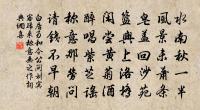 水南秋一半
風景未蕭條
皂蓋回沙苑
籃輿上洛橋
閒嘗黃菊酒
醉唱紫芝謠
稱意那勞問
請錢不早朝
白居易和令公問劉賓
客歸來稱意無之作